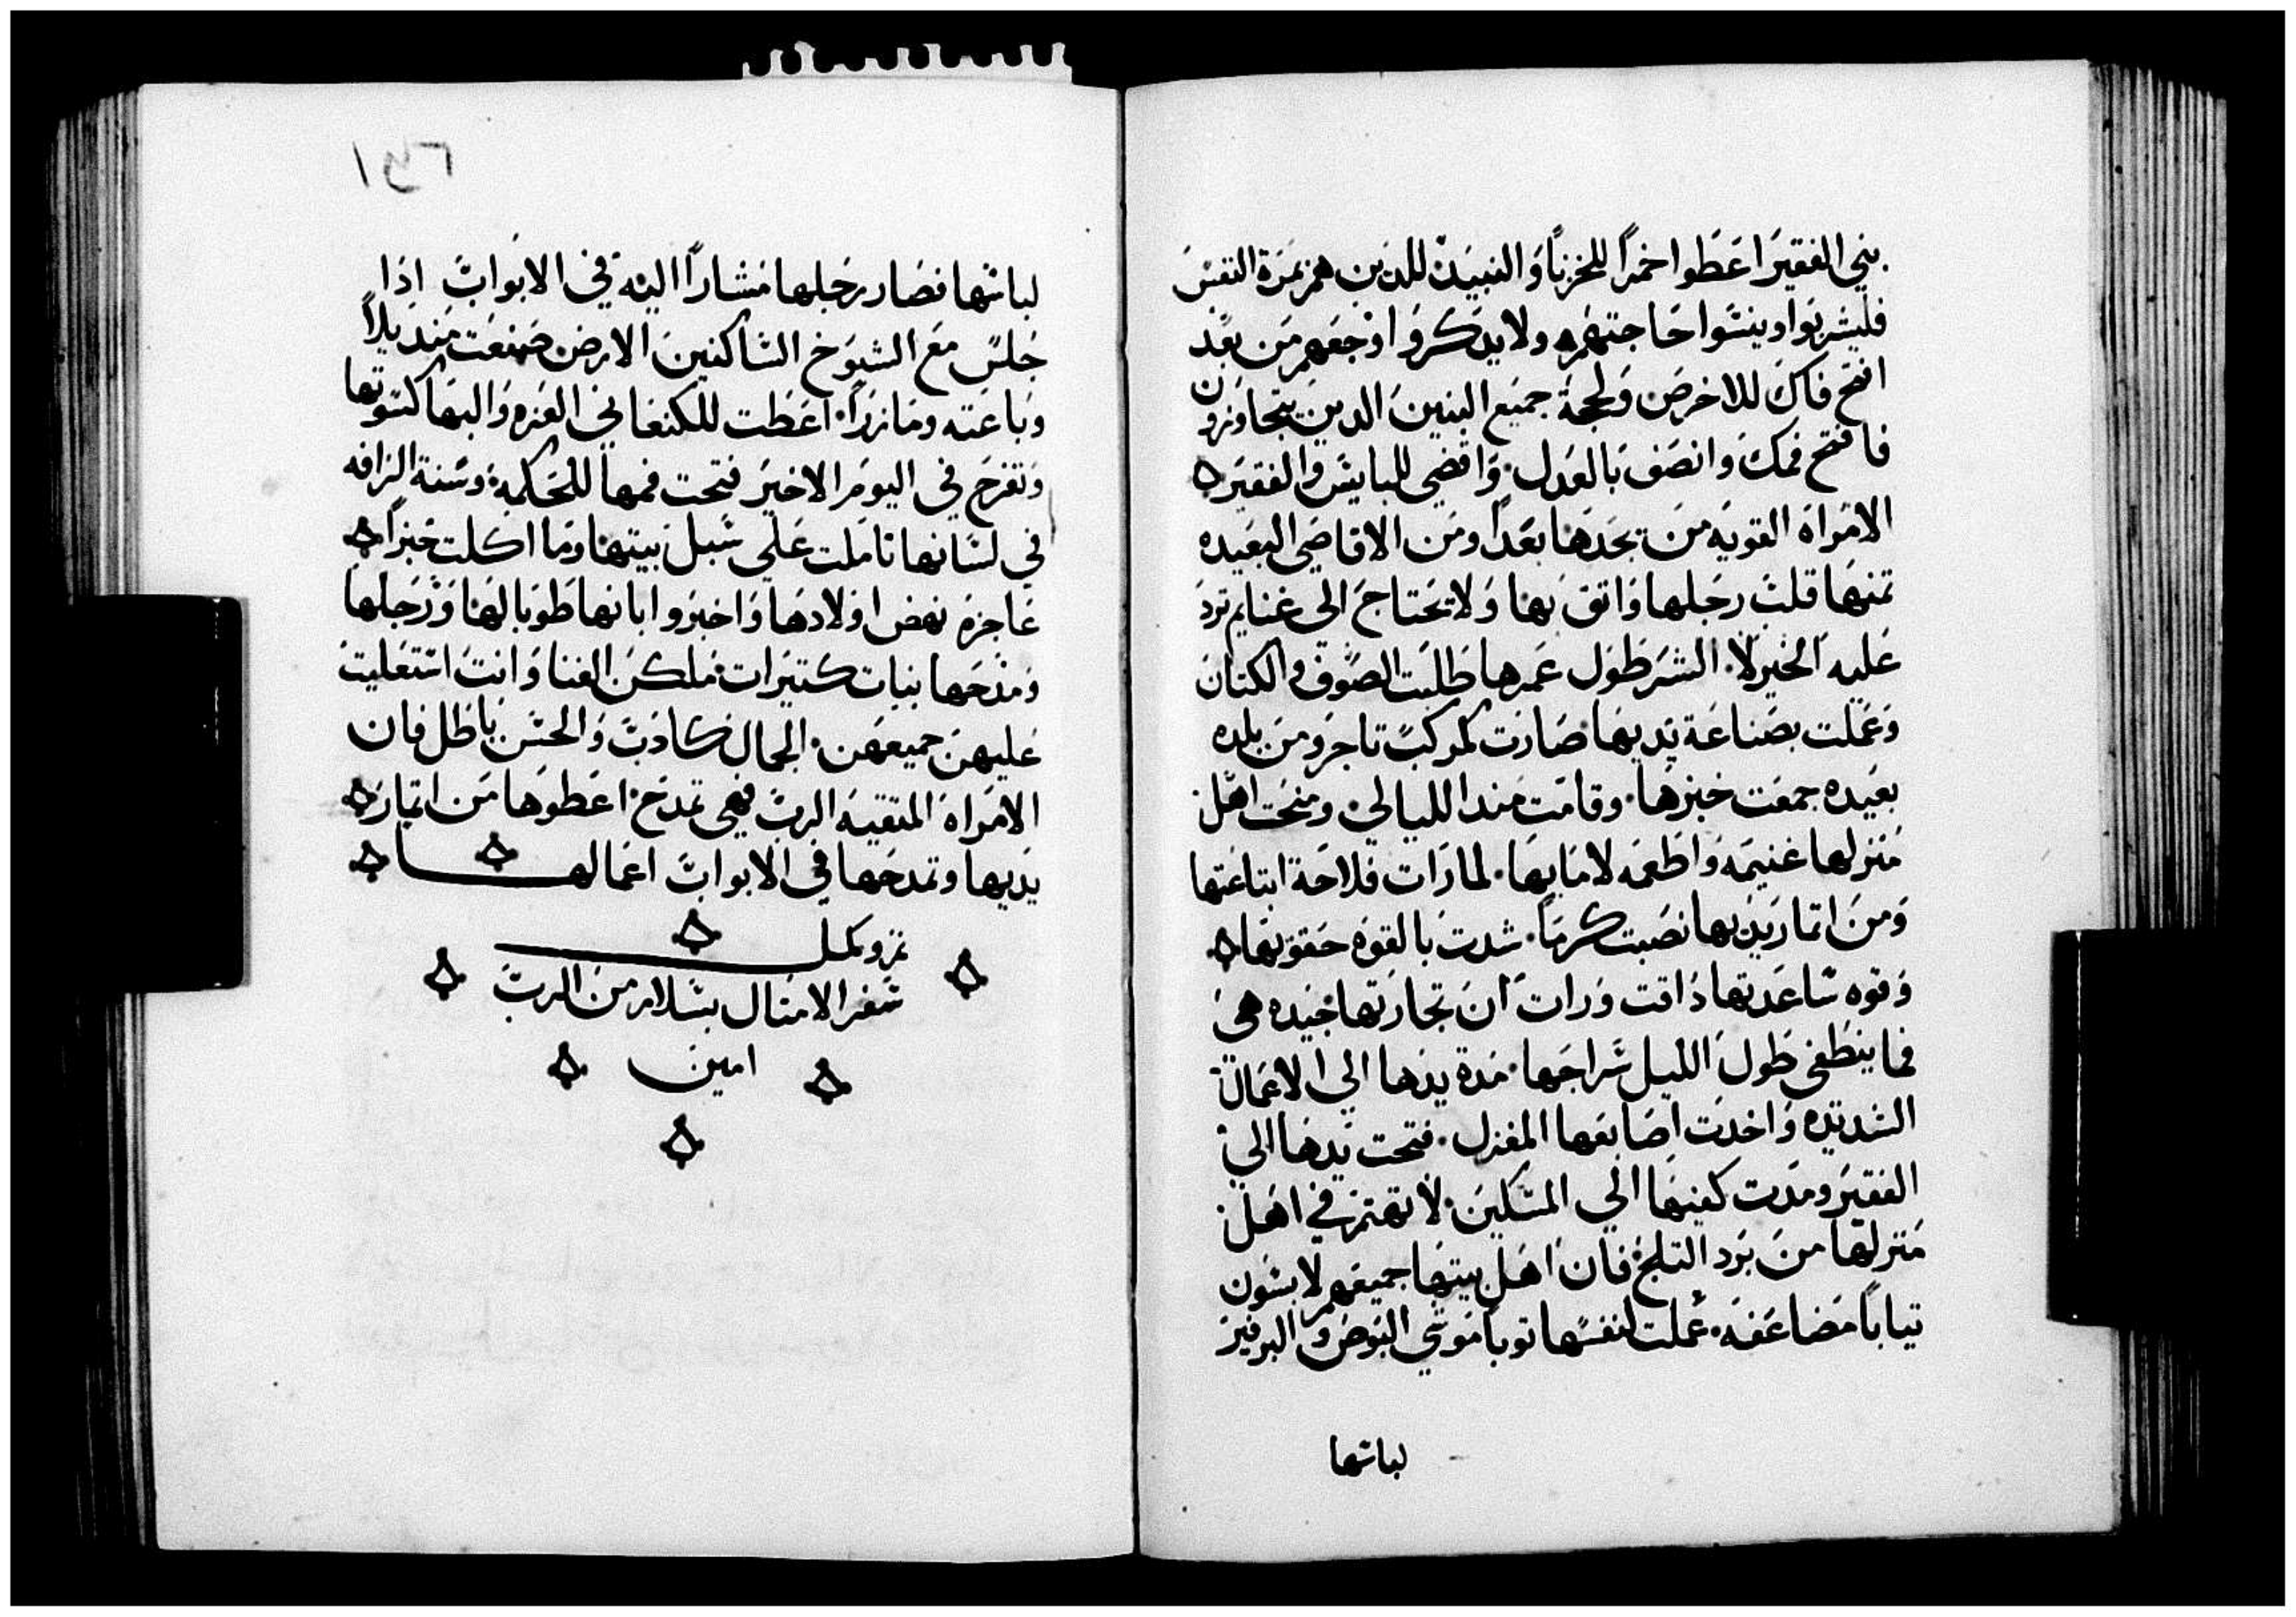 بني الفقير اعطوا خمرا للحزنا والنبيد للدين هم بمرة النفس
فليشربوا وينسوا حاجتهم ولا يدكروا اوجعهم من بعد
افتح فاك للاخرص ولحجة جميع البنين الدين يتجاوزون
فافتح فمك وانصف بالعدل واقضي للبايس والفقير
الامراه القويه من يجدها بعدا ومن الاقاصي البعيده
تمنها قلب رجلها واتق بها ولا يحتاج الى غنايم ترد
عليه الخير لا الشر طول عمرها طالبت الصوف والكتان
وعملت بصناعة يديها صارت كمركب تاجر ومن بلده
بعيده جمعت خبزها وقامت مند الليالي ومنحت اهل
منزلها غنيمه واطعمه لامايها لما رات فلاحة ابتاعتها
ومن اتمار يديها نصبت كرما شدت بالقوه حقوتها
وقوه ساعديها داقت ورات ان تجارتها جيده هي
فما ينطفي طول الليل سراجها مدة يدها الي الاعمال
الشديده واخدت اصابعها المغزل فتحت يدها الي
الفقير ومدت كفيها الي المسكين لا تهتم في اهل
منزلها من برد التلج فان اهل بيتها جميعهم لابسون
تيابا مضاعفه عملت لنفسها توبا موشي البوص والبرفير
لباسها
لباسها فصار رجلها مشارا اليه في الابواب اذا
جلس مع الشيوخ الساكنين الارض صنعت منديلا
وباعته ومازرا اعطت للكنعاني العزه والبها كسوتها
وتفرح في اليوم الاخير فتحت فمها للحكمه وسنة الرافه
في لسانها تاملت علي سبل بيتها وما اكلت خبزا
عاجزه نهض اولادها واخبروا ابانها طوبا لها ورجلها
ومدحها بنات كتيرات ملكن الغنا وانت استعليت
عليهن جميعهن الجمال كادب والحسن باطل فان
الامراه المتقيه الرب فهي تمدح اعطوها من اتمار
يديها وتمدحها في الابواب اعمالها
تم وكمل
سفر الامتال بسلام من الرب
امين